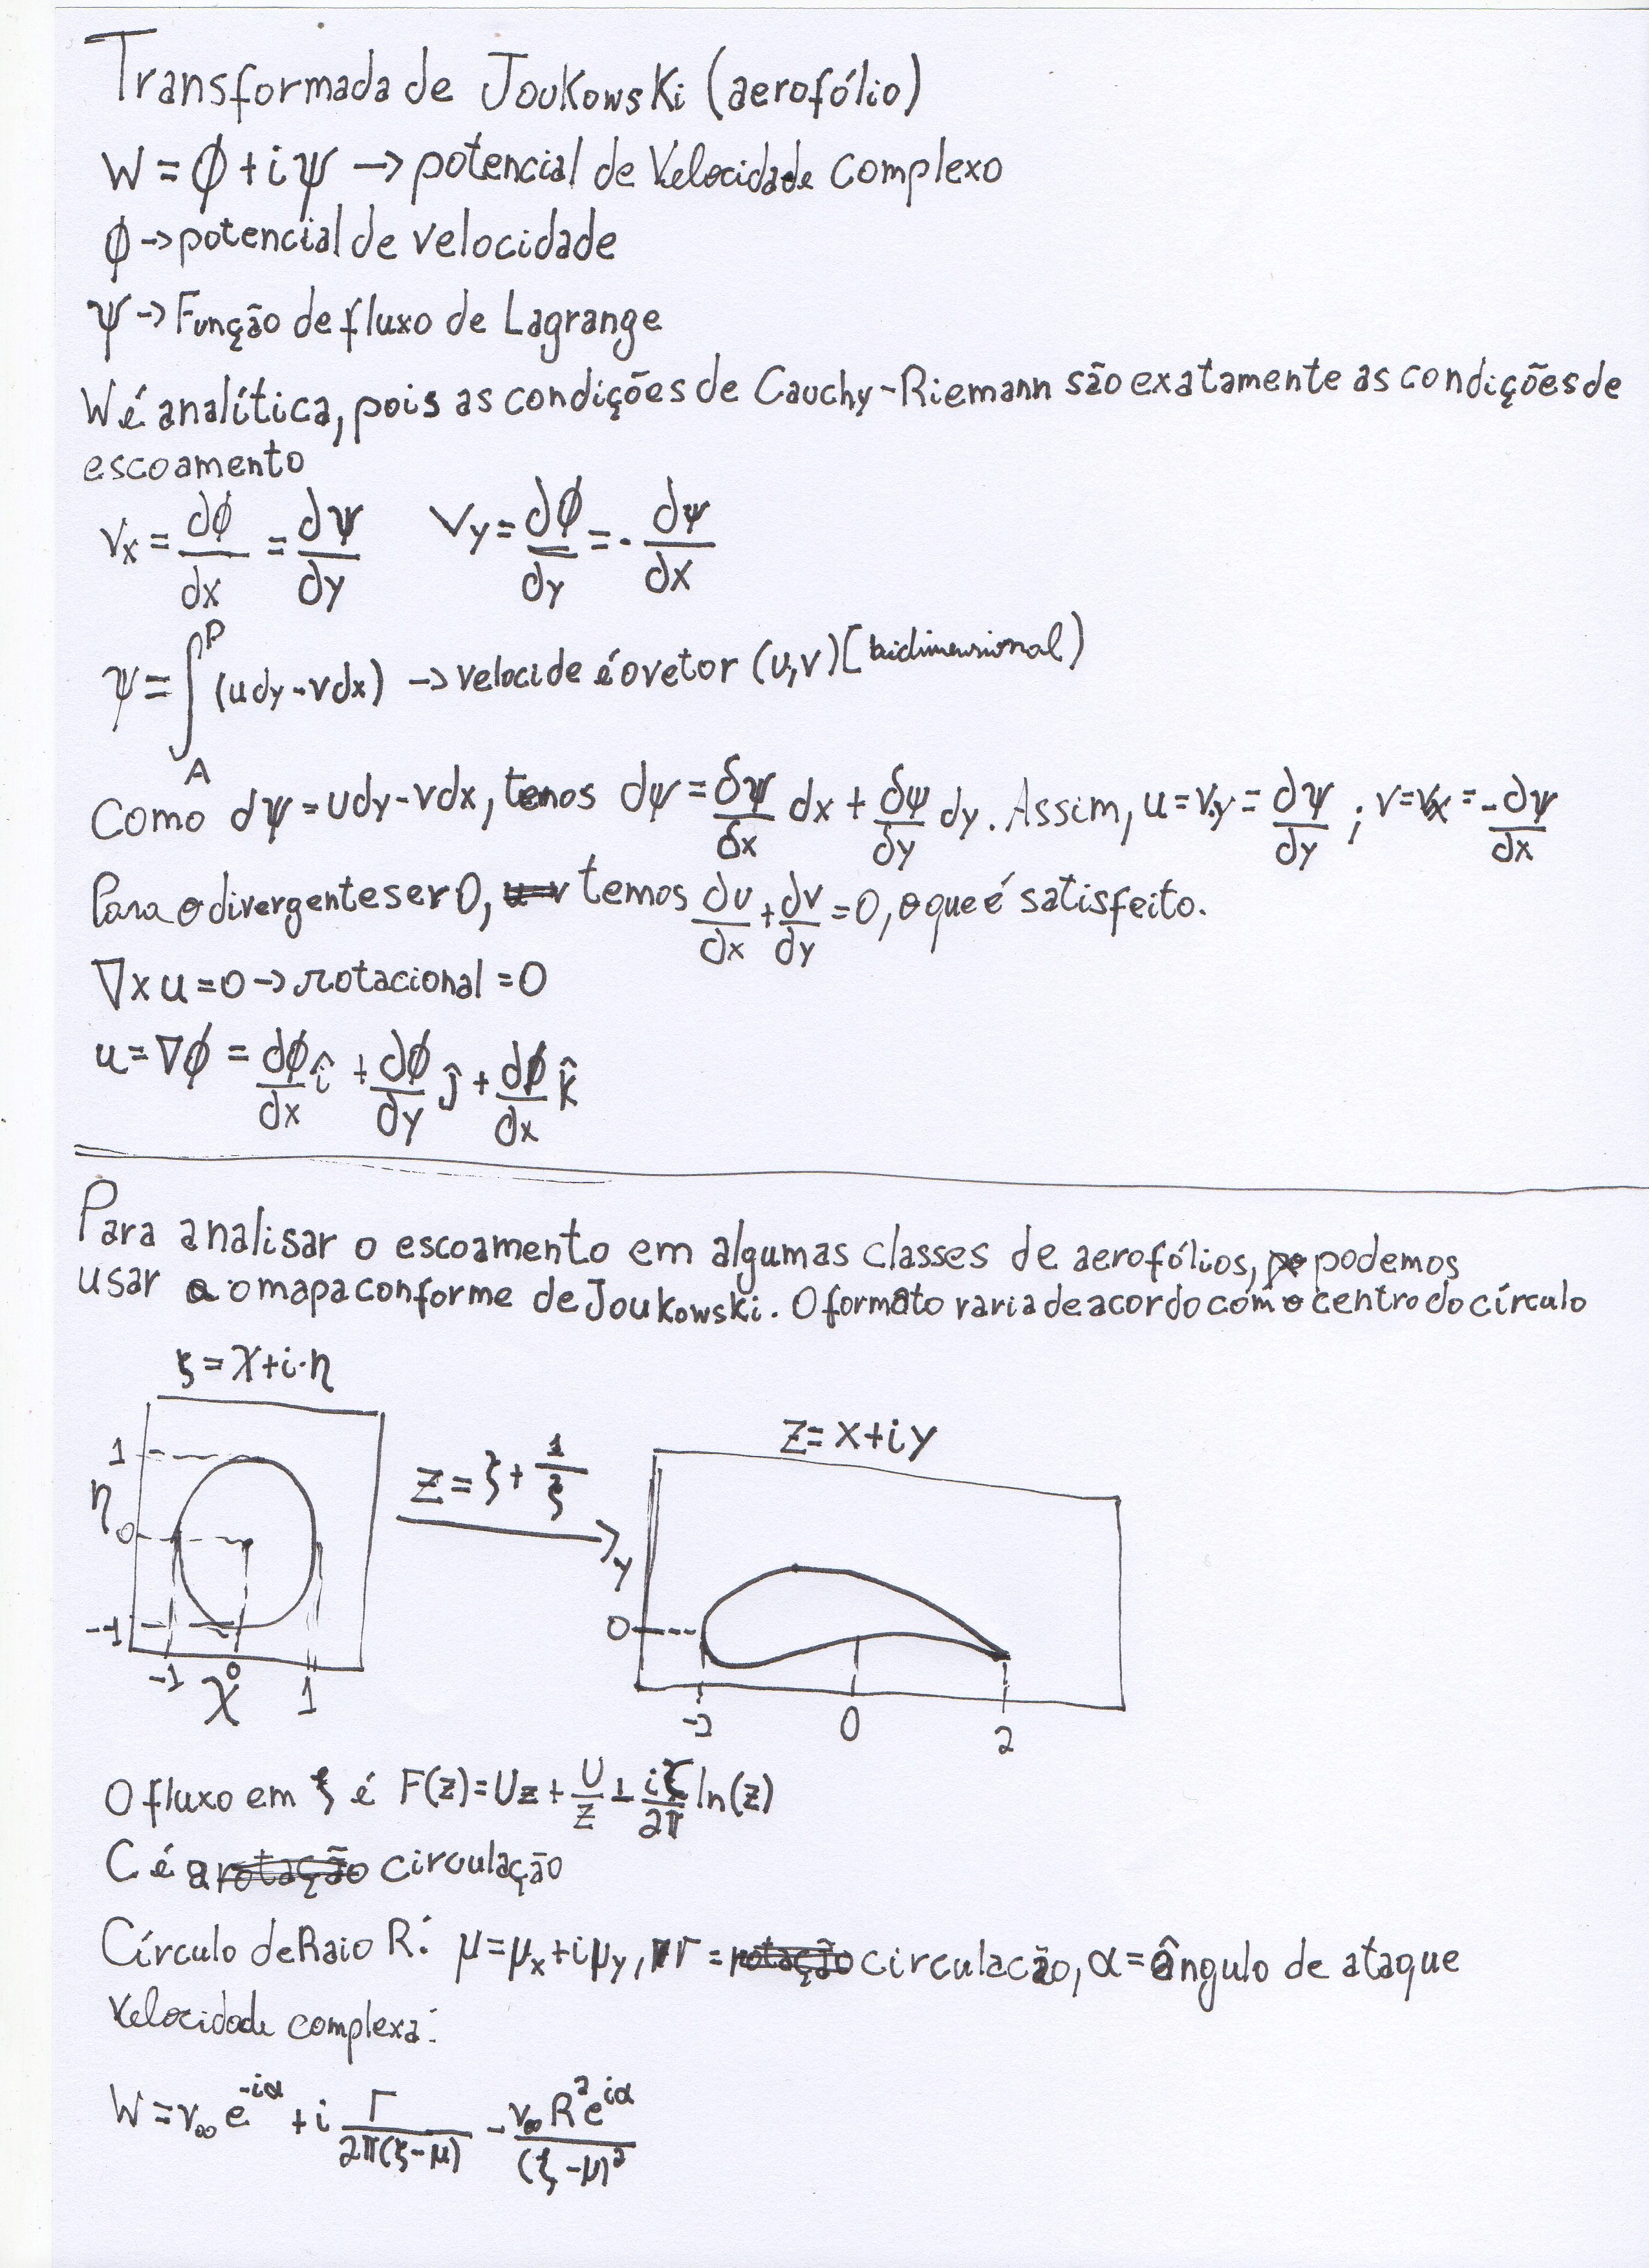 Transformada de Joukowski (aerofólio)
W = ϕ + iψ → potencial de Velocidade complexo
ϕ → potencial de velocidade
ψ → Função de fluxo de Lagrange
W é analítica, pois as condições de Cauchy-Riemann são exatamente as condições de
escoamento
Vx = dϕ/dx = dψ/dy   Vy = dϕ/dy = - dψ/dx
ψ = ∫_A^P (udy - vdx) → velocide é o vetor (u,v) [bidimensional)
Como dψ = udy - vdx, temos dψ = δψ/δx dx + δψ/δy dy. Assim, u = Vy = dψ/dy ; v = Vx = -dψ/dx
Para o divergente ser 0, temos du/dx + dv/dy = 0, o que é satisfeito.
∇ x u = 0 → rotacional = 0
u = ∇ϕ = dϕ/dx î + dϕ/dy ĵ + dϕ/dx k̂
Para analisar o escoamento em algumas classes de aerofólios, podemos
usar o mapa conforme de Joukowski. O formato varia de acordo com o centro do círculo
ξ = χ + i·η
z = x + iy
z = ξ + 1/ξ
1
η
0
-1
-1 0 1
χ
y
0
-2 0 2
O fluxo em ξ é F(z) = Uz + U/z + iC/2π ln(z)
C é a circulação
Círculo de Raio R: μ = μx + iμy, Γ = circulacão, α = ângulo de ataque
Velocidade complexa:
W = v∞ e^-iα + i Γ/2π(ξ-μ) - v∞ R² e^iα/(ξ-μ)²